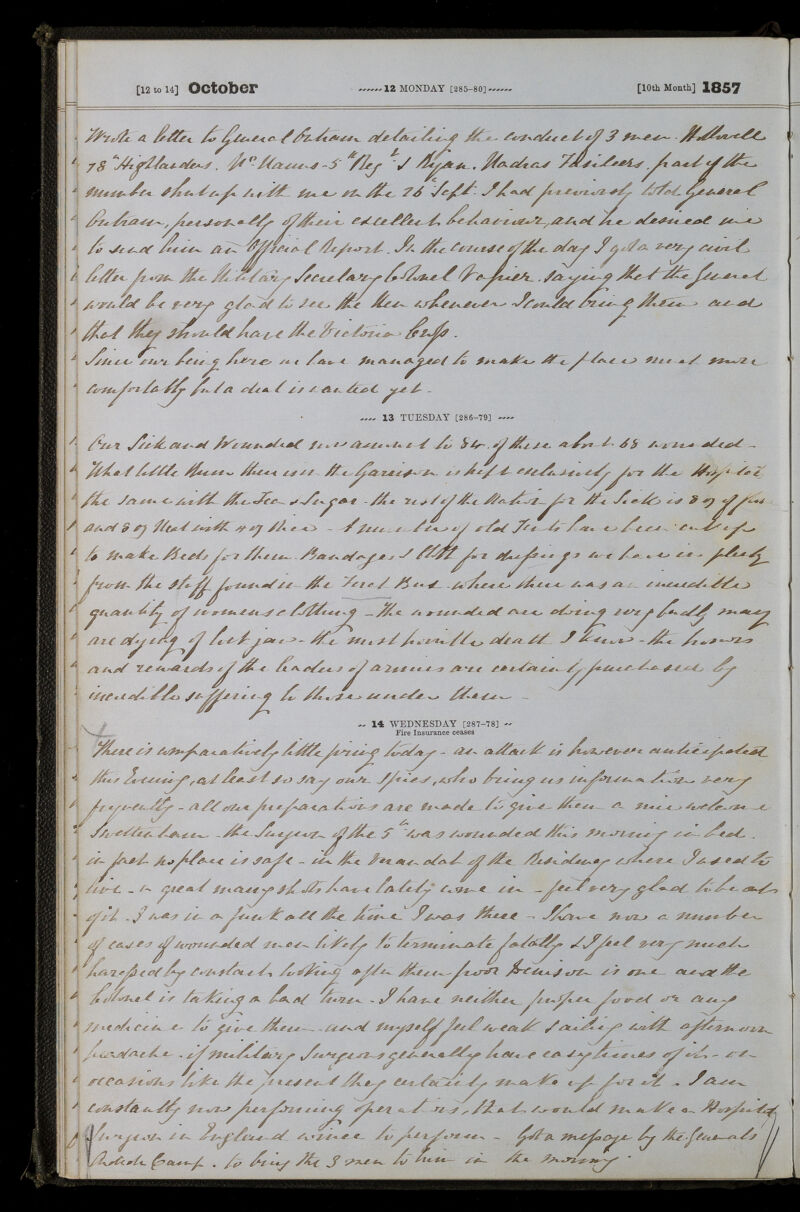 [12 to 14] October ......12 MONDAY [285-80]...... [10th Month] 1857
Wrote a letter to General Outram detailing the conduct of 3 men. Hollowell
78th Highlanders. Wm. Manus. 5th Reg.t & Ryan. Madras Fusileers. part of the
number shut up with me on the 26 Sept. I had previously told General
Outram, personally of their excellent behaviour, and he desired me
to send him an Official Report. In the course of the day I got a very civil
letter from the Military Secretary Colonel Napier. saying that the General
would be very glad to see the Men whenever I could bring them and
that they should have the Victoria Cross.
Since our being here we have managed to make the place much more
comfortable but a deal is wanted yet.
.... 13 TUESDAY [286-79] ....
Our Sick and Wounded now amount to 84. of these about 68 wounded -
What little Rum there is in the Garrison is kept exclusively for the Hospital
the same with the Tea & Sugar - the rest of the Ration for the Sick is 8 oz of flour
and 8 oz Meat with 4 oz Rice - A number of old Tents have been cut up
to make Beds for them. Bandages & Lint for dressings we have in plenty
from the stuff found in the Furhut Bux where there was an incredible
quantity of womens clothing - The wounded are doing very badly many
are dying of lock jaw - the most horrible death I know - the honors
and rewards of the leaders of armies are certainly purchased by
incredible suffering to those under them -
.. 14 WEDNESDAY [287-78] ..
Fire Insurance ceases
There is comparatively little firing today - an attack is however anticipated
this Evening, at least so say our spies, who bring us information very
frequently - all our preparations are made to give them a nice welcome
Swettenham - the Surgeon of the 5th was wounded this morning in bed.
in fact no place is safe - in the of the Residency where I used to
live - a great many shots have lately come in - feel very glad to be out
of it. I was in a funk all the time I was there - I have now a number
of cases of wounded men likely to terminate fatally & I feel very much
harassed by constantly looking after them poor Denison is one and the
Colonel is taking a bad turn - I have neither proper food or any
medicine to give them - and myself feel weak & ailing with afternoon
headache - if military Surgeons generally have easy times of it - on
occasions like the present they certainly make up for it. I am
constantly now performing operations, that would make a Hospital
Surgeon in England wince to perform - Got a message by the Generals
Aide de Camp. to bring the 3 men to him in the morning.